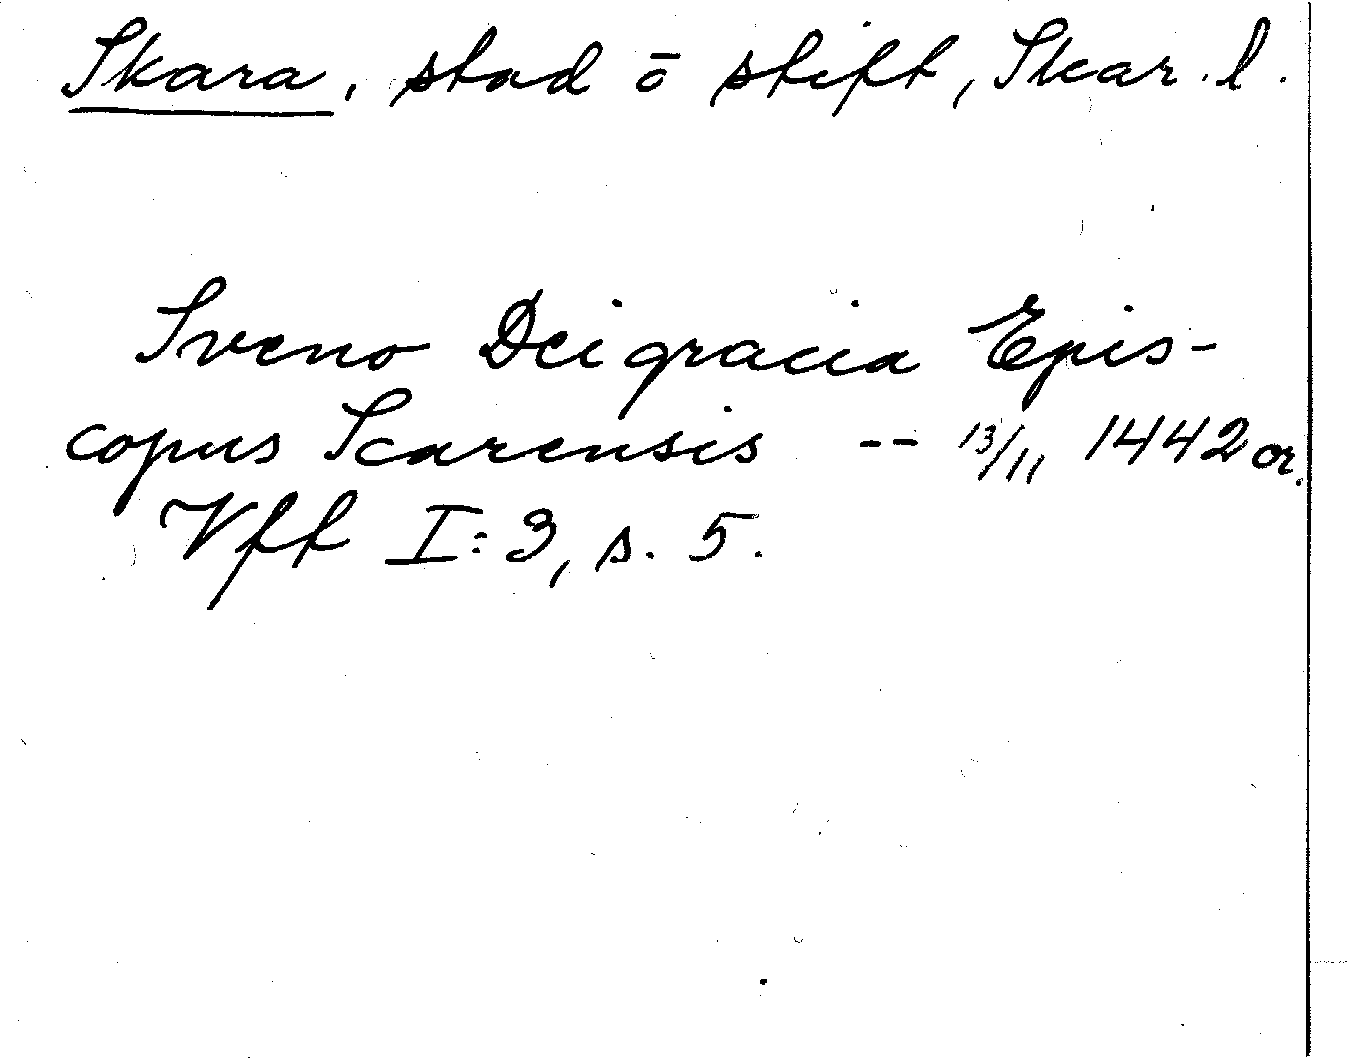 Skara, stad ō stift, Skar. l.
Sveno Dei gracia Epis-
copus Scarensis -- 13/11 1442 or.
Vff I:3, s. 5.